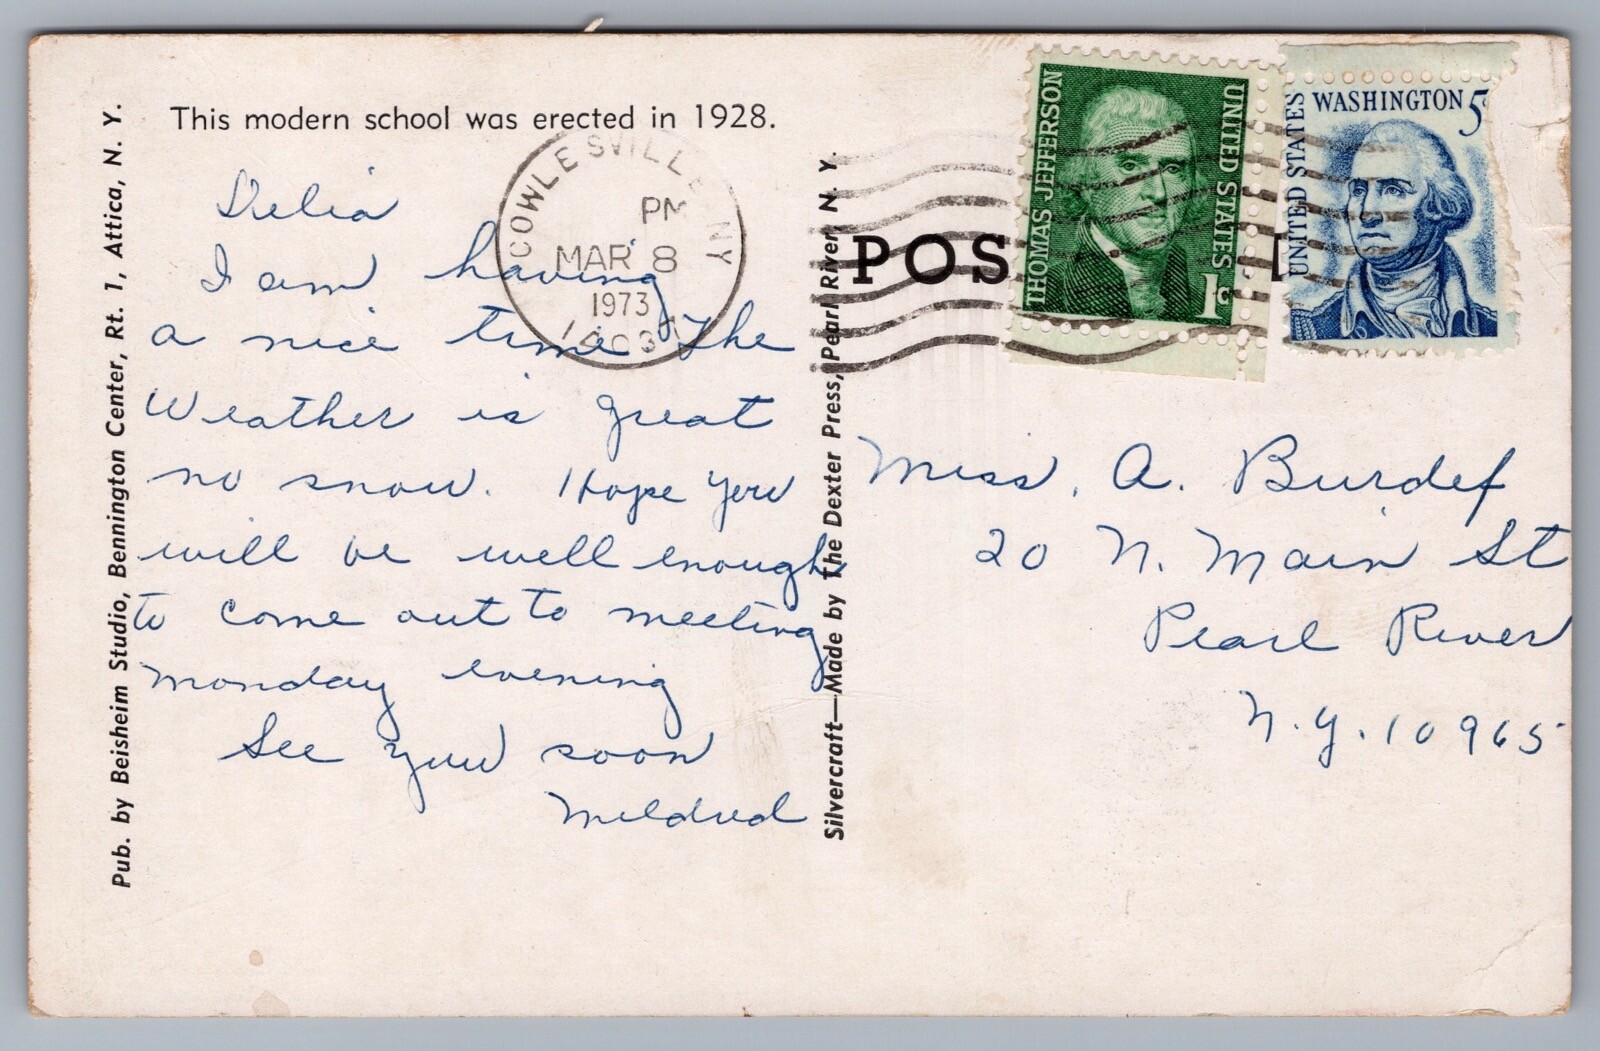 This modern school was erected in 1928.
Delia
I am having
a nice time The
Weather is great
no snow. Hope you
will be well enough
to come out to meeting
monday evening
See you soon
Mildred
Pub. by Beisheim Studio, Bennington Center, Rt. 1, Attica, N. Y.
Silvercraft—Made by The Dexter Press, Pearl River, N. Y.
COWLESVILLE NY
PM
MAR 8
1973
14037
POS
THOMAS JEFFERSON
UNITED STATES
1c
UNITED STATES
WASHINGTON 5c
Miss. A. Burdef
20 N. Main St
Pearl River
N.Y. 10965